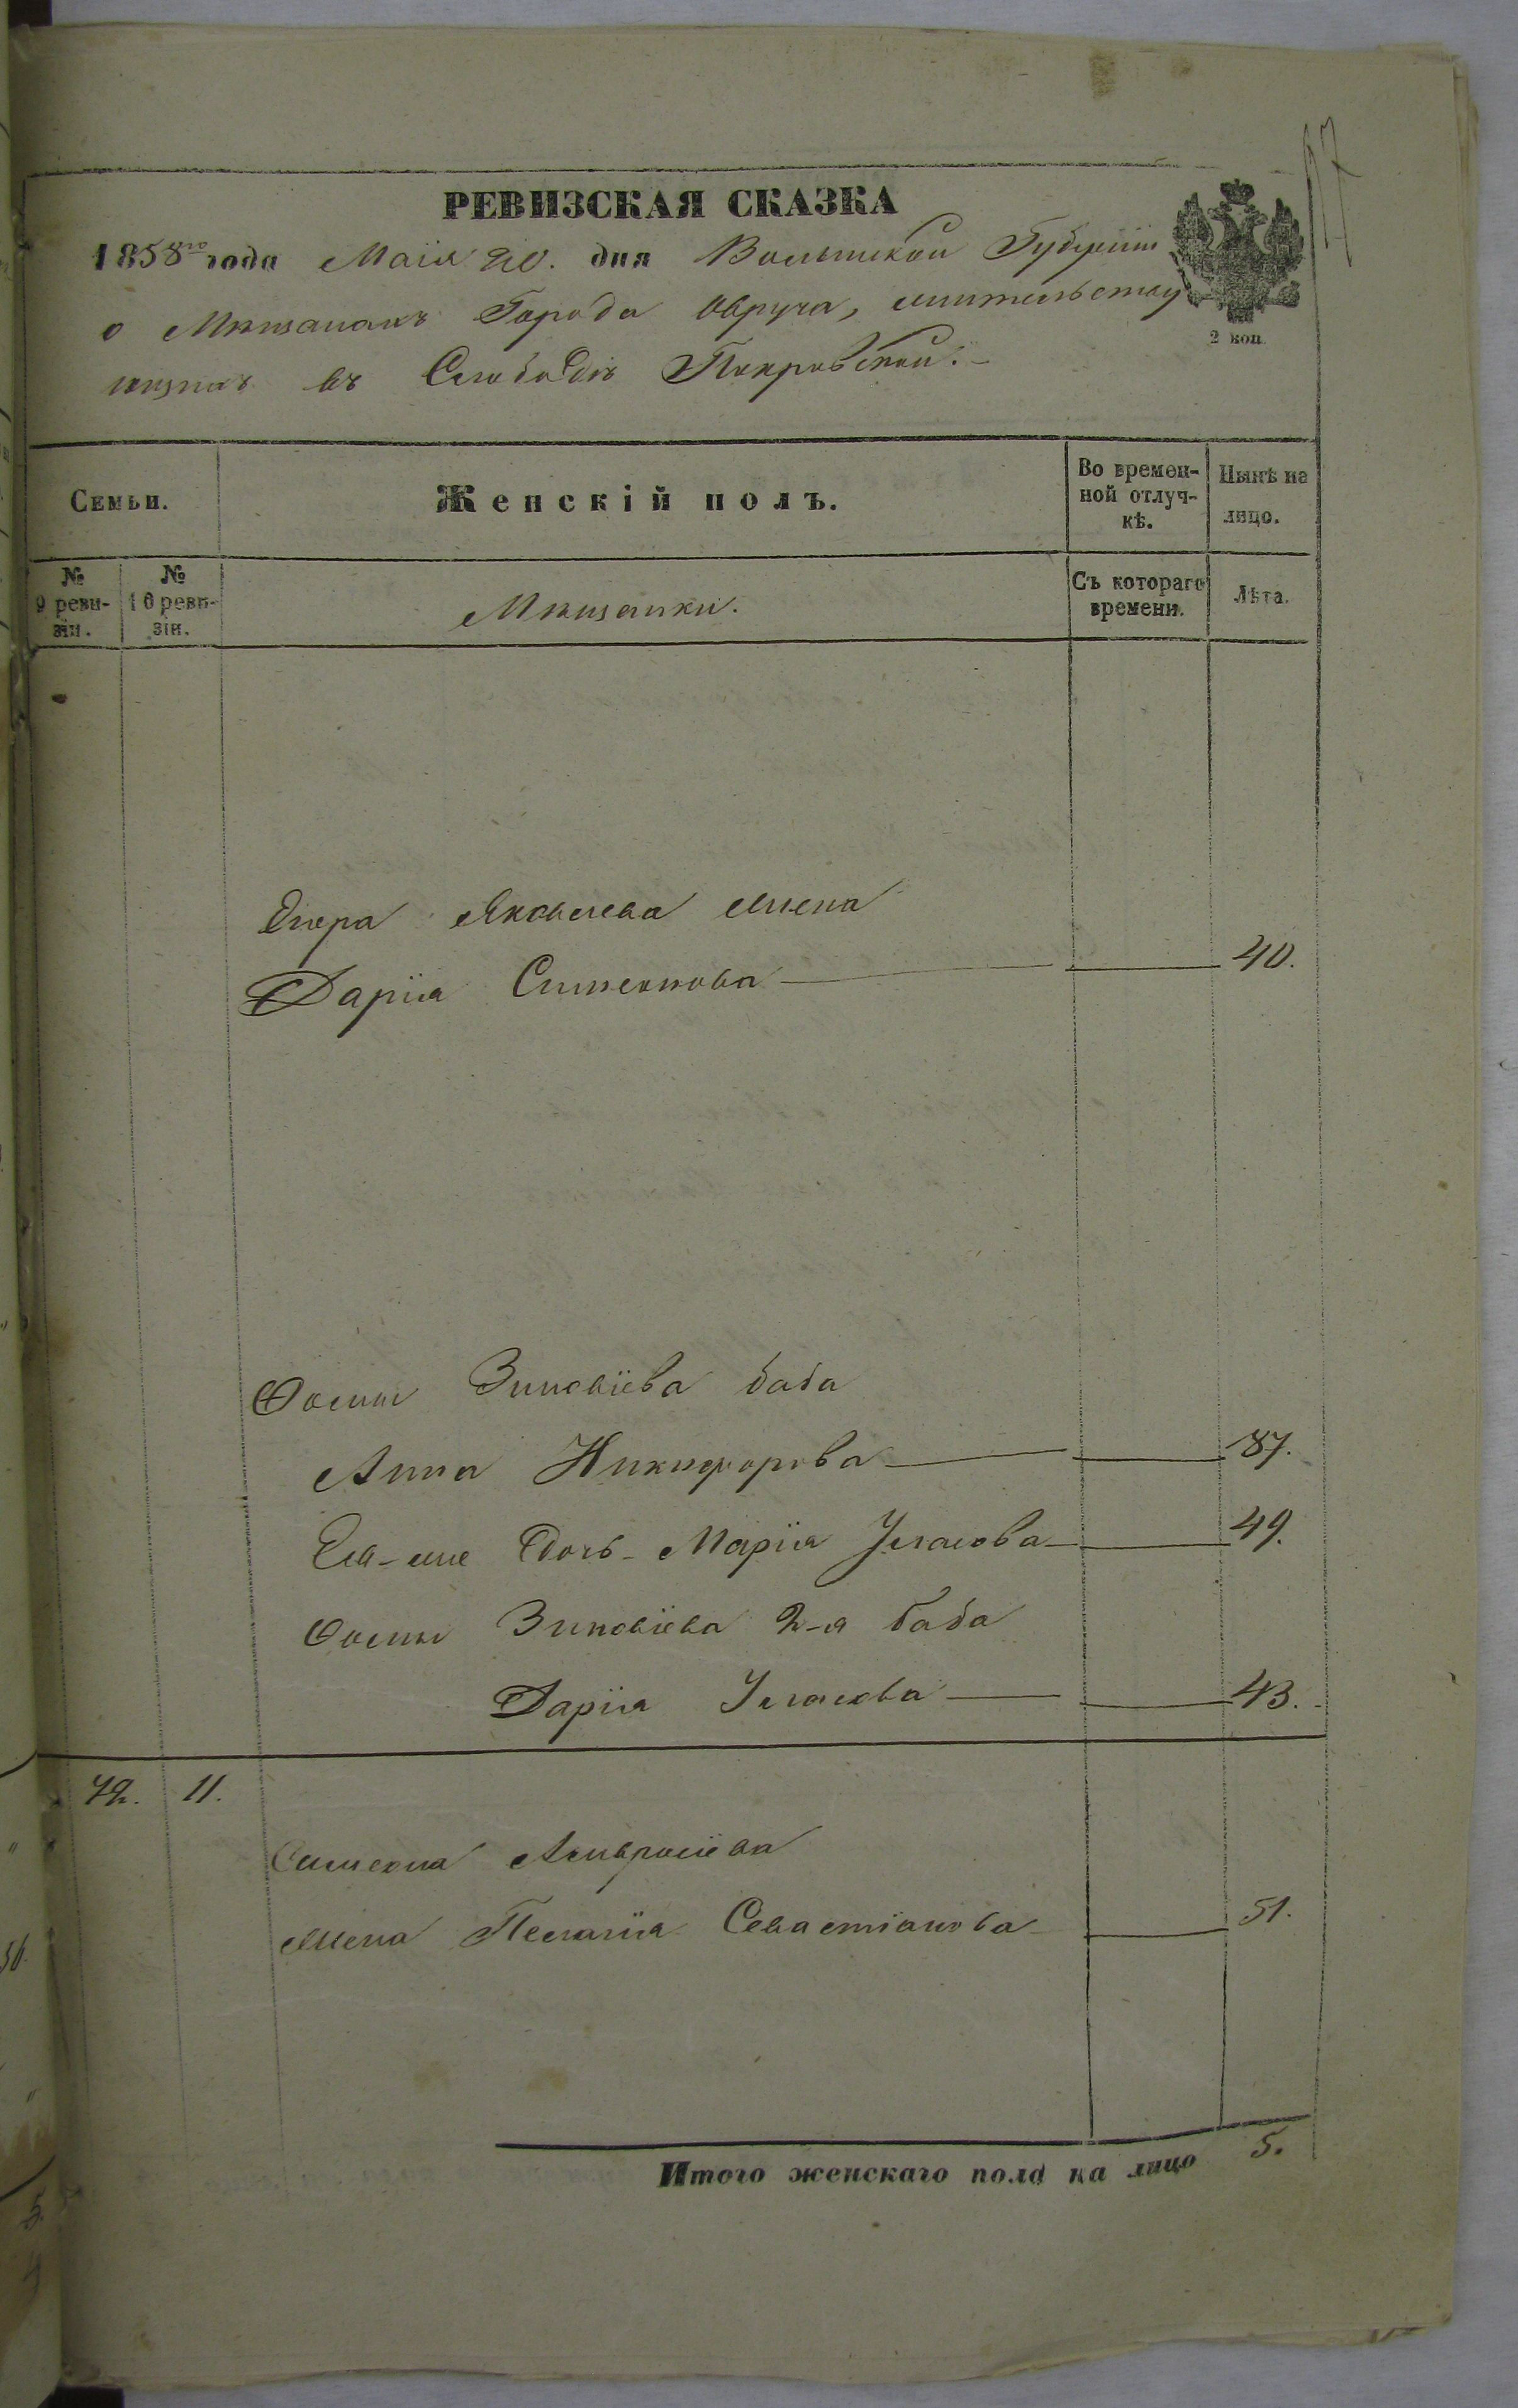 17
РЕВИЗСКАЯ СКАЗКА
1858го года Маiя 20. дня Волынской Губернiи
о Мѣщанахъ Города Овруча, жительствую
щихъ въ Слободѣ Покровской.
2 коп.
Семьи.
Женскiй полъ.
Во времен-
ной отлуч-
кѣ.
Нынѣ на
лицо.
№
9 реви-
зiи.
№
10 реви-
зiи.
Мѣщанки.
Съ котораго
времени.
Лѣта.
Яковлева жена
Дарiя Симеонова 40.
Фомы Зиновiева баба
Анна Никифорова 87.
Ея-же дочь Марiя 49.
Фомы Зиновiева 2-я баба
Дарiя 43.
72. 11.
Симеона Амвросiева
жена Пелагiя Севастiанова 51.
Итого женскаго пола на лицо 5.